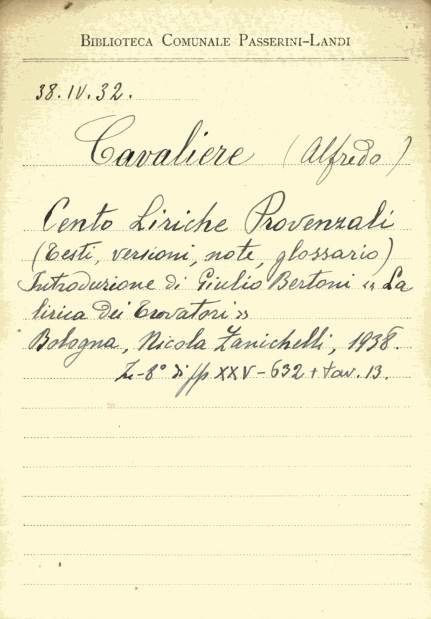 BIBLIOTECA COMUNALE PASSERINI-LANDI
38.IV.32.
Cavaliere (Alfredo)
Cento Liriche Provenzali
(Testi, versioni, note, glossario)
Introduzione di Giulio Bertoni « La
lirica dei Trovatori »
Bologna, Nicola Zanichelli, 1938.
In-8° di pp XXV-632 + tav. 13.